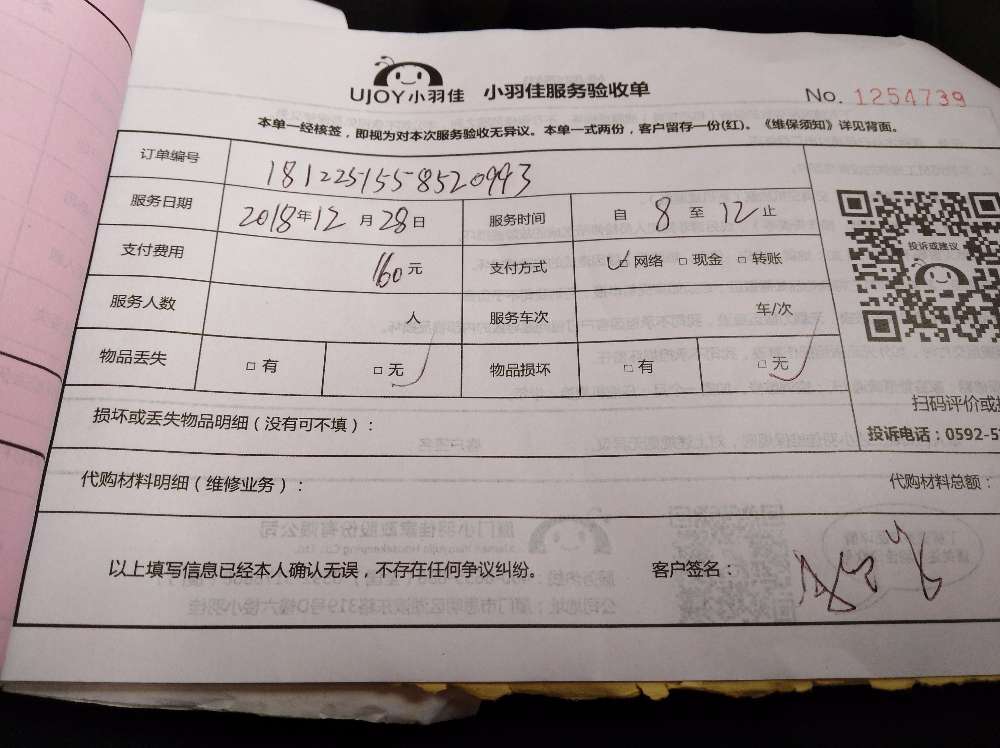 UJOY小羽佳 小羽佳服务验收单
No. 1254739
本单一经核签，即视为对本次服务验收无异议。本单一式两份，客户留存一份(红)。《维保须知》详见背面。
订单编号 1812251558520993
服务日期 2018年12月28日 服务时间 自 8 至 12 止
支付费用 160元 支付方式 ☑网络 □现金 □转账
投诉或建议
服务人数 人 服务车次 车/次
物品丢失 □有 □无 ✓ 物品损坏 □有 □无 ✓
扫码评价或
损坏或丢失物品明细（没有可不填）：
投诉电话：0592-5
代购材料明细（维修业务）： 代购材料总额：
以上填写信息已经本人确认无误，不存在任何争议纠纷。 客户签名：